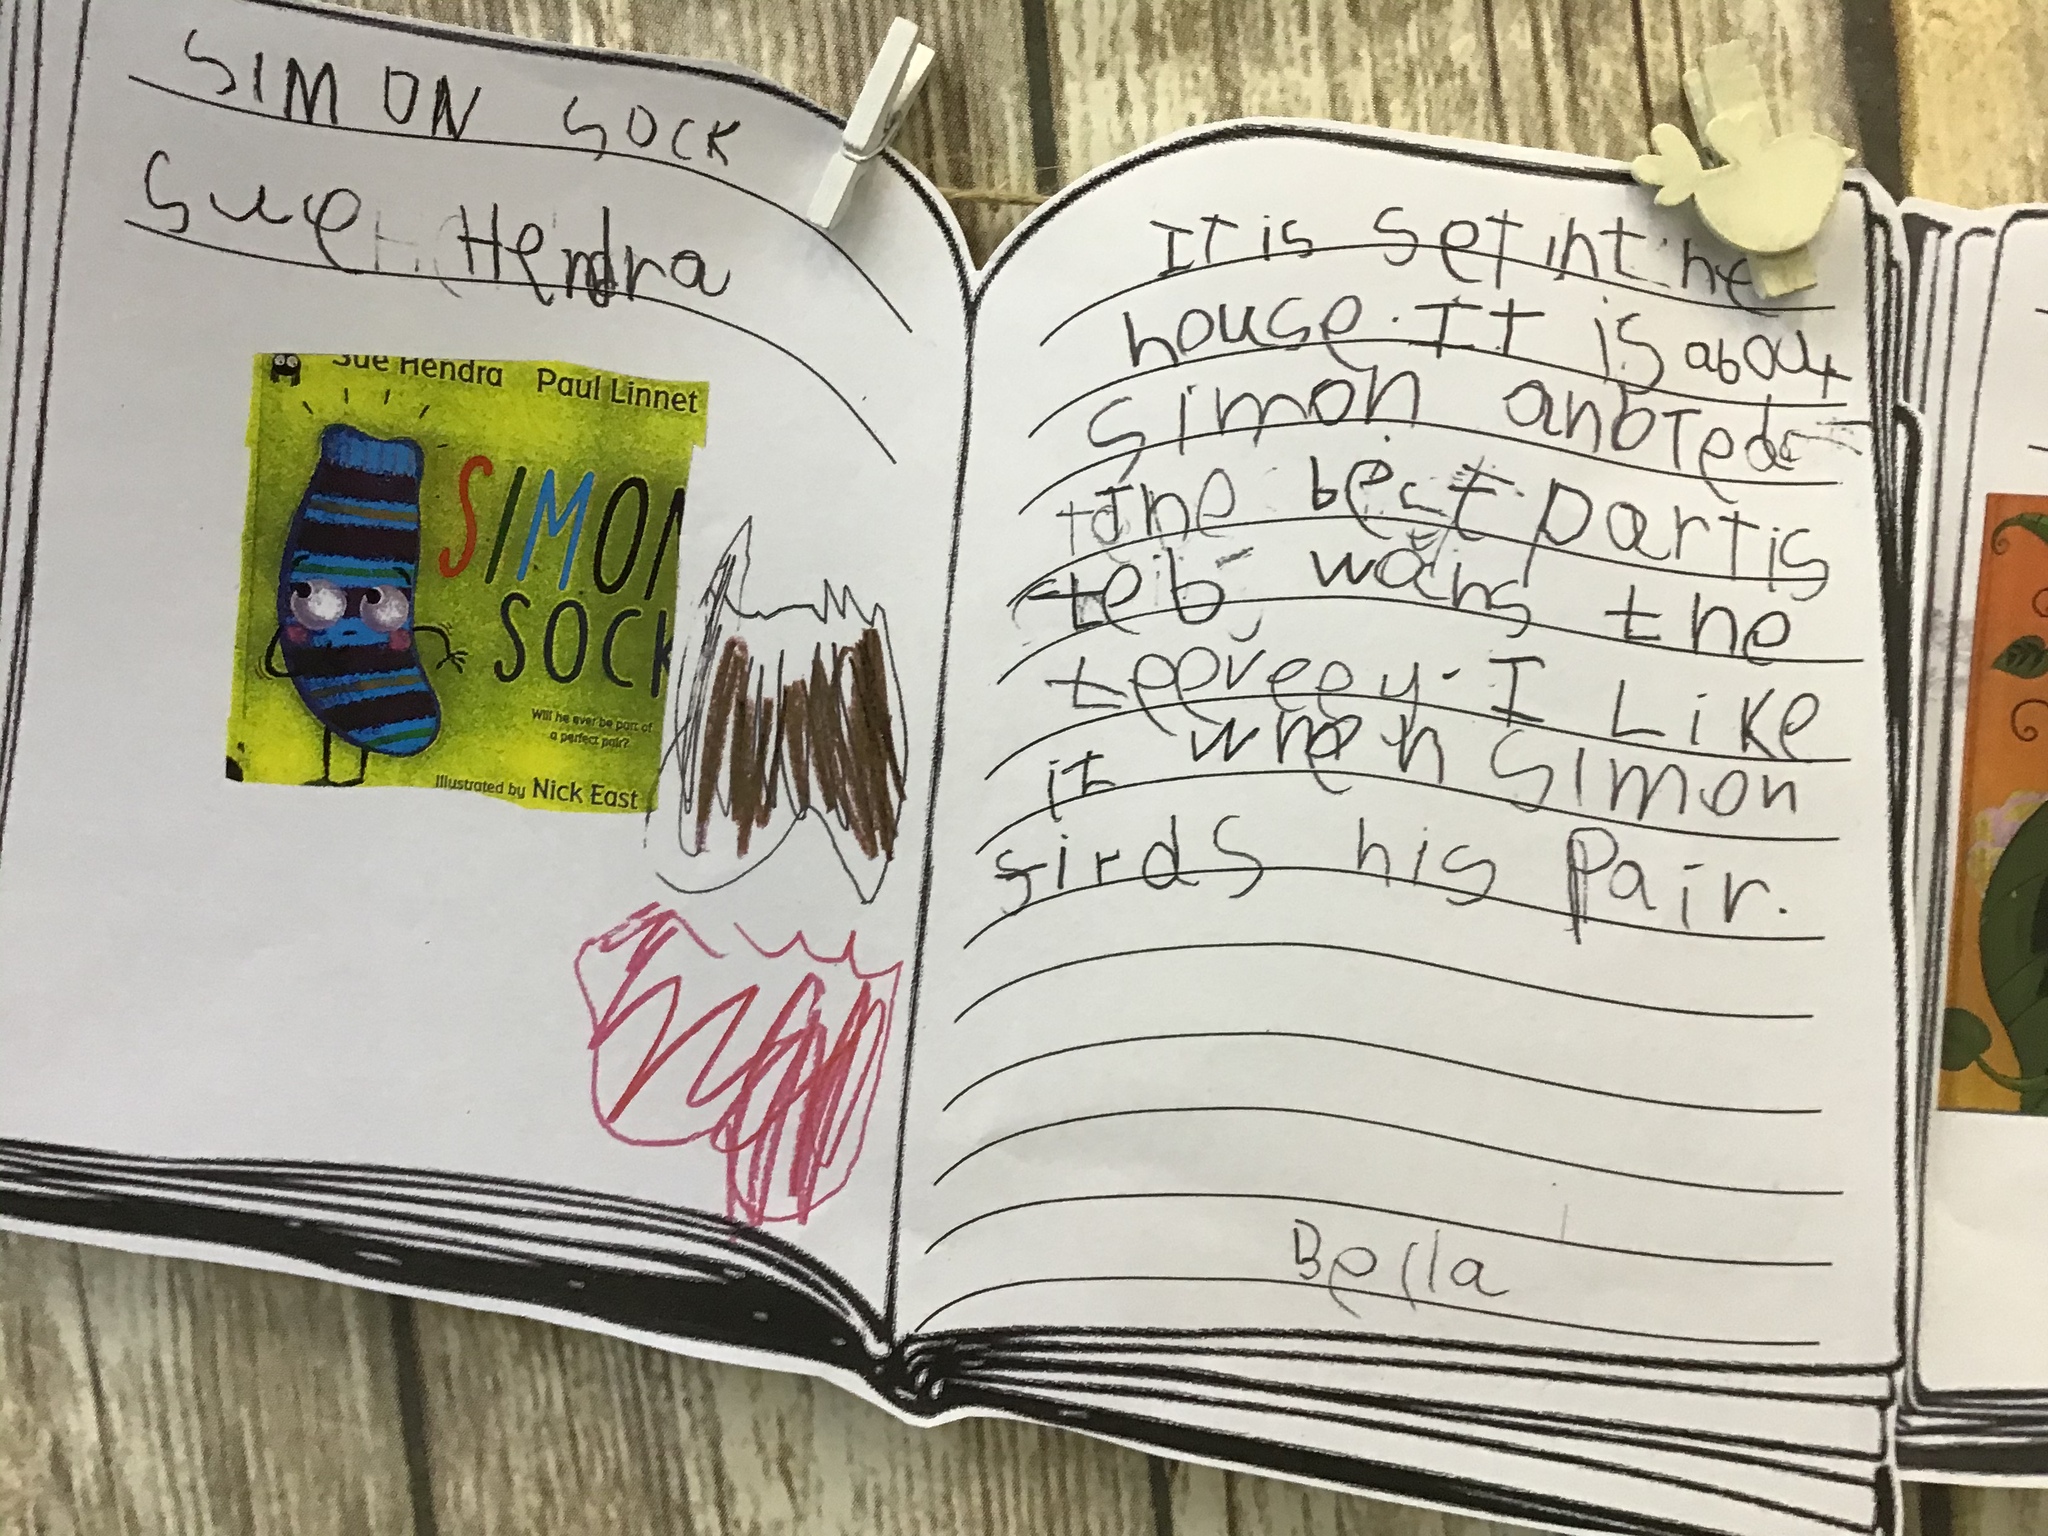 SIMON SOCK
Sue Hendra
Sue Hendra Paul Linnet
SIMON
SOCK
Will he ever be part of
a perfect pair?
Illustrated by Nick East
It is set in the
house. It is about
Simon anb Ted
the best part is
teb wachs the
teeveey. I Like
it when Simon
firds his Pair.
Bella